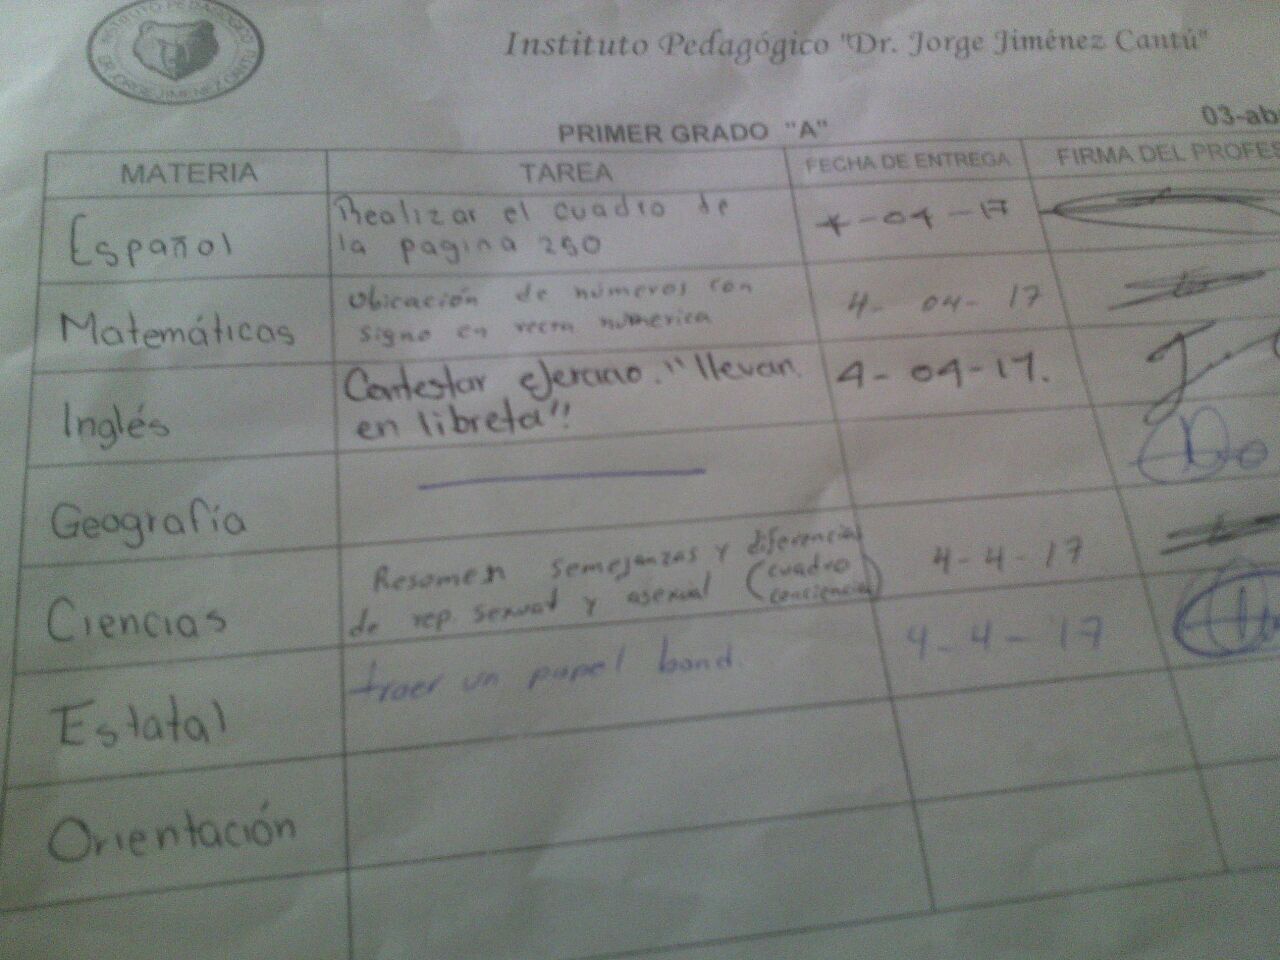 INSTITUTO PEDAGOGICO
DR. JORGE JIMENEZ CANTU
Instituto Pedagógico "Dr. Jorge Jiménez Cantú"
03-ab
PRIMER GRADO "A"
MATERIA TAREA FECHA DE ENTREGA FIRMA DEL PROFES
Español Realizar el cuadro de la pagina 250 -04-17
Matemáticas Ubicación de números con signo en recta numerica 4-04-17
Inglés Contestar ejercicio. "llevan en libreta"! 4-04-17.
Geografía
Ciencias Resumen semejanzas y diferencias de rep. sexual y asexual (cuadro 4-4-17
Estatal traer un papel bond. 4-4-17
Orientación